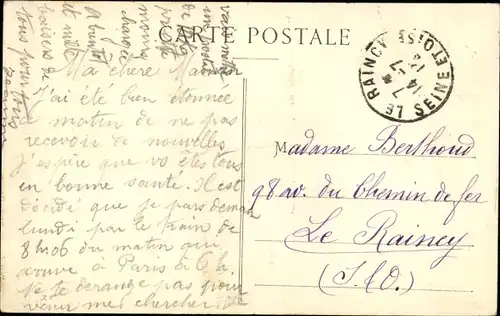 CARTE POSTALE
Ma chère Maman
J'ai été bien étonnée
ce matin de ne pas
recevoir de nouvelles
j'espère que vs êtes tous
en bonne santé. Il est
décidé que je pars demain
lundi par le train de
8h.06 du matin qui
arrive à Paris à 6 h.
Ne te dérange pas pour
venir me chercher. Je
A bientôt
et mille
baisers de
tous pour tous
LE RAINCY
SEINE ET OISE
Madame Berthoud
98 av. du Chemin de fer
Le Raincy
(S./O.)